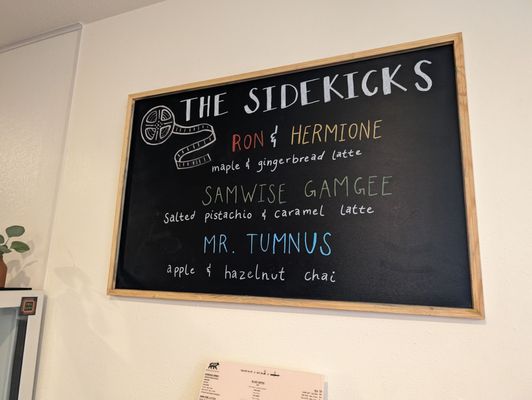 THE SIDEKICKS
RON & HERMIONE
maple & gingerbread latte
SAMWISE GAMGEE
Salted pistachio & caramel latte
MR. TUMNUS
apple & hazelnut chai